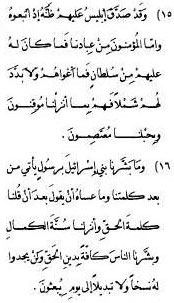 (١٥) وَقَدْ صَدَّقَ إبليسُ عَلَيهِمْ ظَنَّهُ إِذِ اتَّبعوهُ
وامّا المُؤْمنونَ مِنْ عِبادِنا فَما كانَ لَهُ
عليهِمْ مِنْ سُلطانٍ فَما أَغواهُمْ ولا بَدَّدَ
لَهُمْ شَمْلًا فَهُمْ بِما أنزلْنا مُوقِنونَ
وبِحَبْلِنا مُعْتَصِمُونَ.
(١٦) وما بَشَّرنا بني إسْرائيلَ برسولٍ يأتي مِنْ
بعدِ كلمتِنا وما عساهُ أنْ يقولَ بعدَ أنْ قُلْنا
كلمةَ الحقِّ وأنزلْنا سُنَّةَ الكمالِ
وبشَّرنا الناسَ كافّةً بدينِ الحَقِّ ولَنْ يجِدوا
لهُ نَسْخاً ولا تَبديلاً إلى يومِ يُبعثونَ.